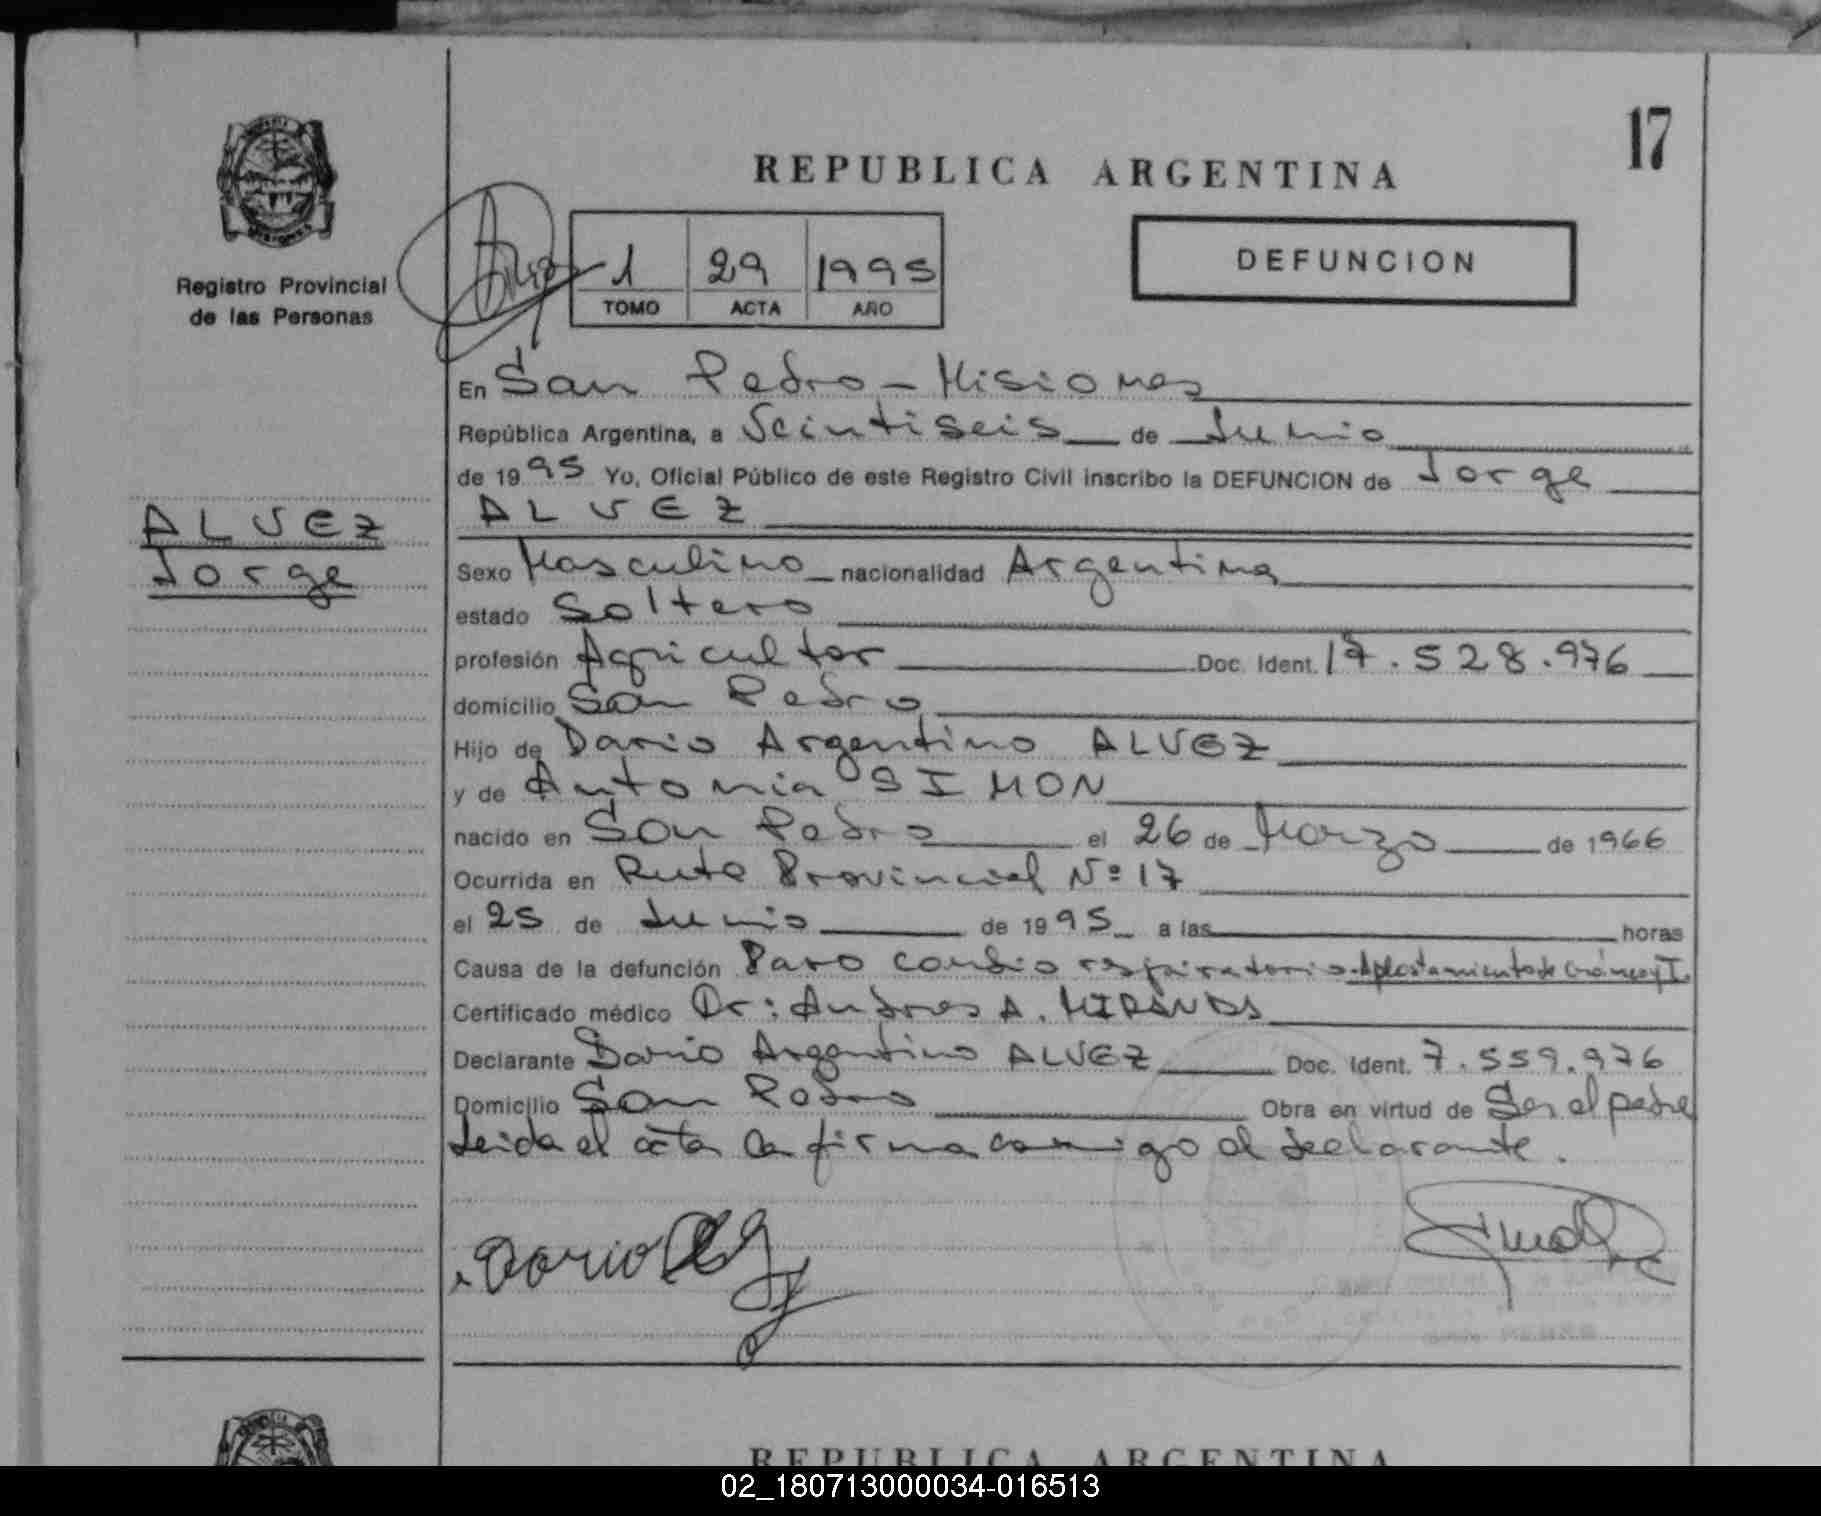 17
REPUBLICA ARGENTINA
Registro Provincial
de las Personas
1 29 1995
TOMO ACTA AÑO
DEFUNCION
En San Pedro - Misiones
República Argentina, a Veintiseis de Junio
de 1995 Yo, Oficial Público de este Registro Civil inscribo la DEFUNCION de Jorge
ALVEZ
ALVEZ
Jorge
Sexo Masculino nacionalidad Argentina
estado Soltero
profesión Agricultor Doc. Ident. 17.528.976
domicilio San Pedro
Hijo de Dario Argentino ALVEZ
y de Antonia SIMON
nacido en San Pedro el 26 de Marzo de 1966
Ocurrida en Ruta Provincial Nº 17
el 25 de Junio de 1995 a las horas
Causa de la defunción Paro cardio respiratorio - Aplastamiento de Cráneo y T.
Certificado médico Dr: Andres A. MIRANDA
Declarante Dario Argentino ALVEZ Doc. Ident. 7.559.976
Domicilio San Pedro Obra en virtud de Ser el padre
Leida el acta la firma conmigo el declarante.
Dario
REPUBLICA ARGENTINA
02_180713000034-016513